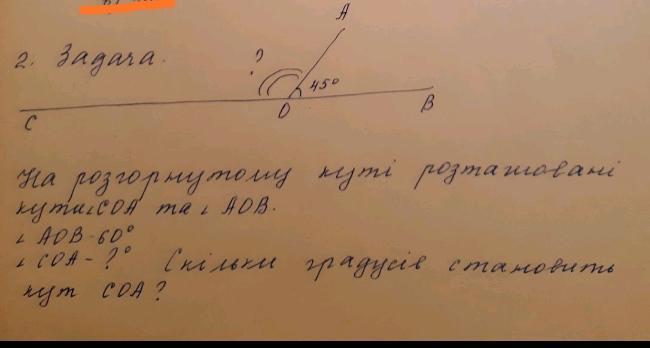 2. Задача.
A
?
45°
C
O
B
На розгорнутому куті розташовані
кути ∠COA та ∠AOB.
∠AOB-60°
∠COA-?° Скільки градусів становить
кут COA?